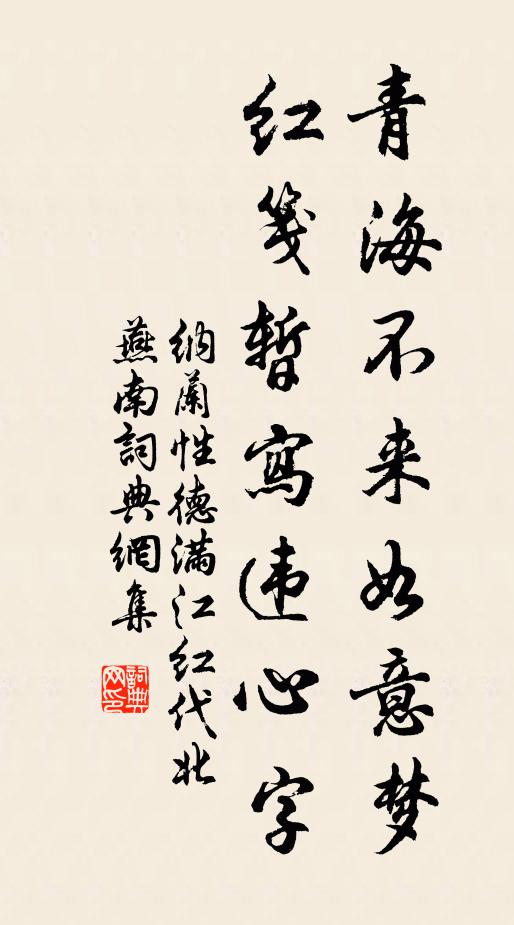 青海不来如意梦
红笺暂写违心字
纳兰性德满江红代北
燕南词典网集
词典网印